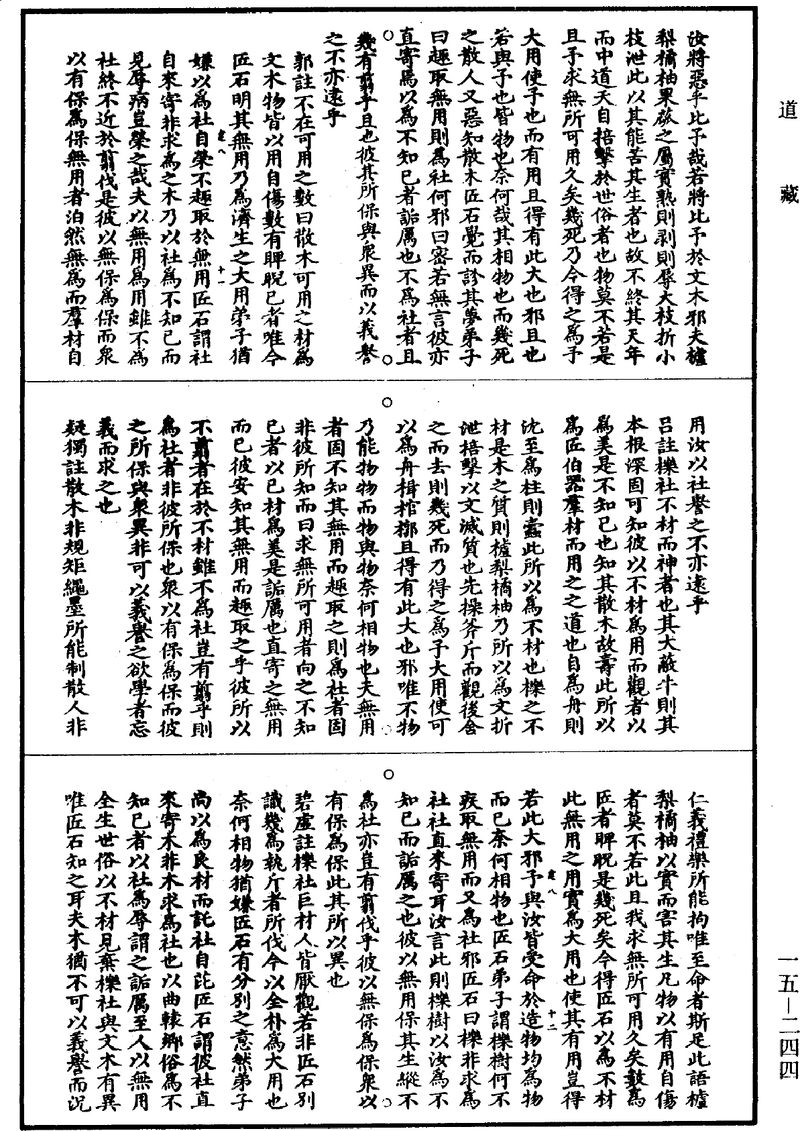 道藏
汝將惡乎比予哉若將比予於文木邪夫樝
梨橘柚果蓏之屬實熟則剥則辱大枝折小
枝泄此以其能苦其生者也故不終其天年
而中道夭自掊擊於世俗者也物莫不若是
且予求無所可用久矣幾死乃今得之爲予
大用使予也而有用且得有此大也邪且也
若與予也皆物也奈何哉其相物也而幾死
之散人又惡知散木匠石覺而診其夢弟子
曰趣取無用則爲社何邪曰密若無言彼亦
直寄焉以爲不知已者詬厲也不爲社者且
幾有翦乎且也彼其所保與衆異而以義譽
之不亦遠乎
郭註不在可用之數曰散木可用之材爲
文木物皆以用自傷數有睥睨已者唯今
匠石明其無用乃爲濟生之大用弟子猶
嫌以爲社自榮不趣取於無用匠石謂社
自來寄非求爲之木乃以社爲不知已而
見辱病豈榮之哉夫以無用爲用雖不爲
社終不近於翦伐是彼以無保爲保而衆
以有保爲保無用者泊然無爲而羣材自
用汝以社譽之不亦遠乎
吕註櫟社不材而神者也其大蔽牛則其
本根深固可知彼以不材爲用而觀者以
爲美是不知已也知其散木故壽此所以
爲匠伯器羣材而用之之道也自爲舟則
沈至爲柱則蠹此所以爲不材也櫟之不
材是木之質則樝梨橘柚乃所以爲文折
泄掊擊以文滅質也先操斧斤而觀後舍
之而去則幾死而乃得之爲予大用使可
以爲舟楫棺槨且得有此大也邪唯不物
乃能物物而物與物奈何相物也夫無用
者固不知其無用而趣取之則爲社者固
非彼所知而曰求無所可用者向之不知
已者以已材爲美是詬厲也直寄之無用
而已彼安知其無用而趣取之乎彼所以
不翦者在於不材雖不爲社豈有翦乎則
爲社者非彼所保也衆以有保爲保而彼
之所保與衆異非可以義譽之欲學者忘
義而求之也
疑獨註散木非規矩繩墨所能制散人非
仁義禮樂所能拘唯至命者斯足此語樝
梨橘柚以實而害其生凡物以有用自傷
者莫不若此且我求無所可用久矣數爲
匠者睥睨是幾死矣今得匠石以爲不材
此無用之用實爲大用也使其有用豈得
若此大邪予與汝皆受命於造物均爲物
而已奈何相物也匠石弟子謂櫟樹何不
疾取無用而又爲社邪匠石曰櫟非求爲
社社直來寄耳汝言此則櫟樹以汝爲不
知已而詬厲之也彼以無用保其生縱不
爲社亦豈有翦伐乎彼以無保爲保衆以
有保爲保此其所以異也
碧虚註櫟社巨材人皆厭觀若非匠石别
識幾爲執斤者所伐今以全朴爲大用也
奈何相物猶嫌匠石有分别之意然弟子
尚以爲良材而託社自詫匠石謂彼社直
來寄木非木求爲社也以曲轅鄉俗爲不
知已者以社爲辱謂之詬厲至人以無用
全生世俗以不材見棄櫟社與文木有異
唯匠石知之耳夫木猶不可以義譽而況
一五—二四四